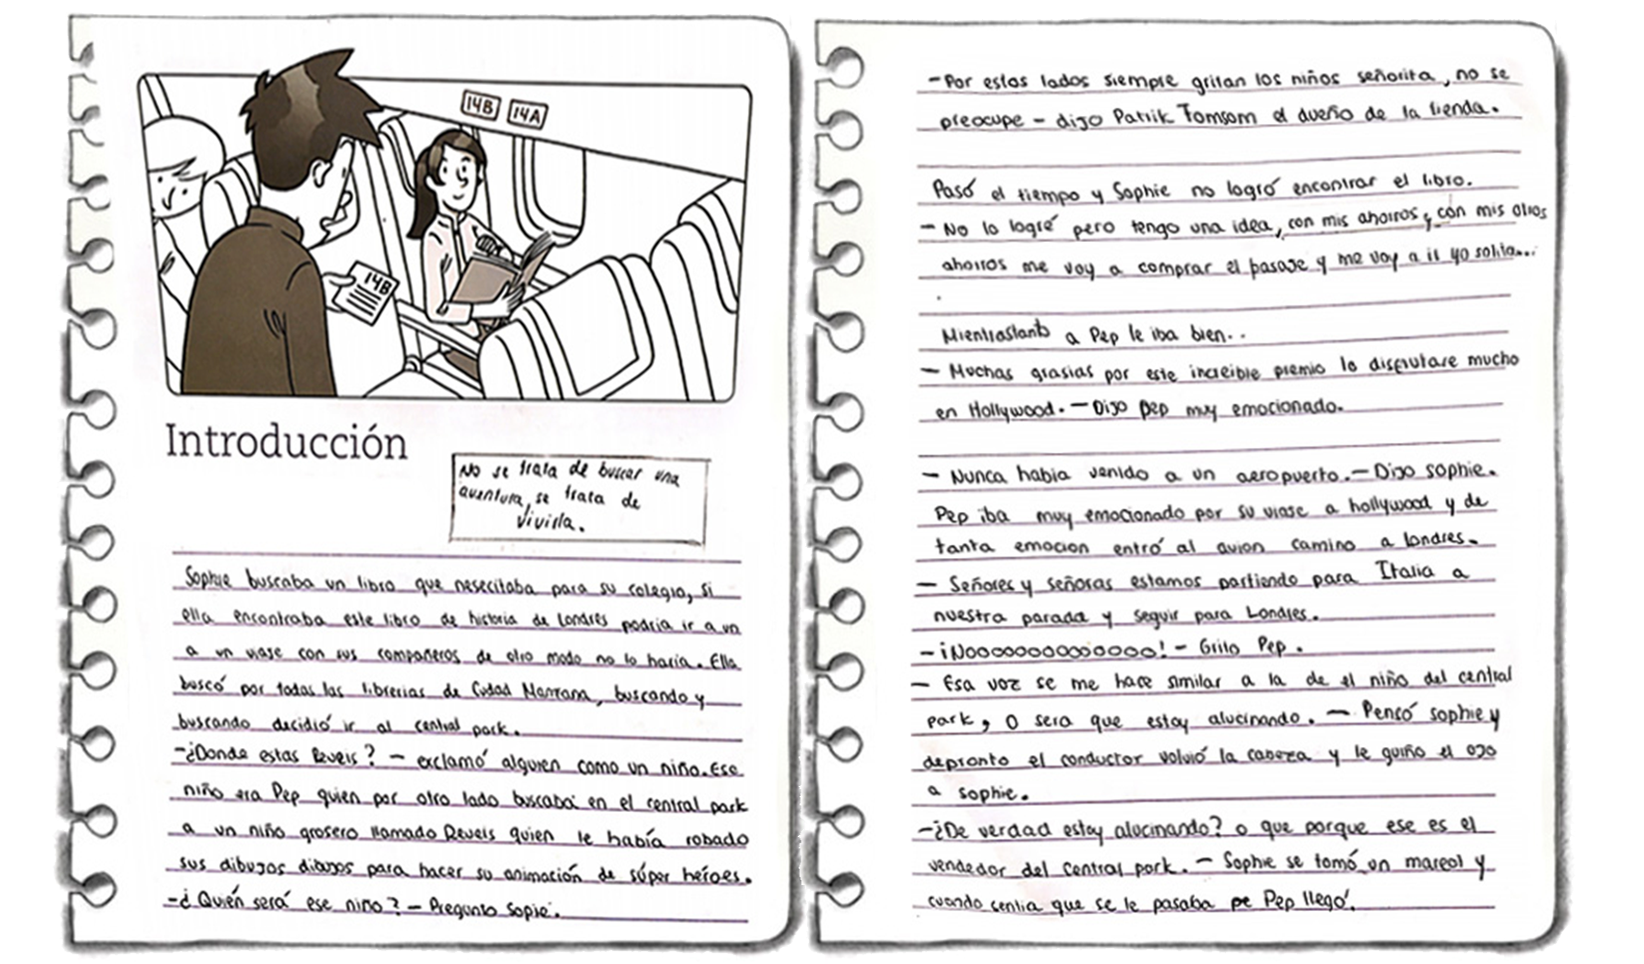 14B 14A
14B
Introducción
No se trata de buscar una
aventura, se trata de
vivirla.
Sophie buscaba un libro que nesecitaba para su colegio, si
ella encontraba este libro de historia de Londres podria ir a un
a un viaje con sus compañeros de otro modo no lo haria. Ella
buscó por todas las librerias de Cuidad Manzana, buscando y
buscando decidió ir al central park.
-¿Donde estas Reveis? - exclamó alguien como un niño. Ese
niño era Pep quien por otro lado buscaba en el central park
a un niño grosero llamado Reveis quien le había robado
sus dibujos diarios para hacer su animación de súper héroes.
-¿Quién será ese niño? - Pregunto Sopie.
-Por estos lados siempre gritan los niños señorita, no se
preocupe - dijo Patrik Tomsom el dueño de la tienda.
Pasó el tiempo y Sophie no logró encontrar el libro.
- No lo logré pero tengo una idea, con mis ahorros y con mis otros
ahorros me voy a comprar el pasaje y me voy a ir yo solita...
Mientrastanto a Pep le iba bien..
- Muchas grasias por este increible premio lo disfrutare mucho
en Hollywood. - Dijo Pep muy emocionado.
- Nunca habia venido a un aeropuerto. - Dijo sophie.
Pep iba muy emocionado por su viaje a hollywood y de
tanta emocion entró al avion camino a londres.
- Señores y señoras estamos partiendo para Italia a
nuestra parada y seguir para Londres.
- ¡Nooooooooooooooo! - Grito Pep.
- Esa voz se me hace similar a la de el niño del central
park, o sera que estoy alucinando. - Pensó sophie y
depronto el conductor volvió la cabeza y le guiño el ojo
a sophie.
-¿De verdad estoy alucinando? o que porque ese es el
vendedor del Central park. - Sophie se tomó un mareol y
cuando sentia que se le pasaba pe Pep llegó.